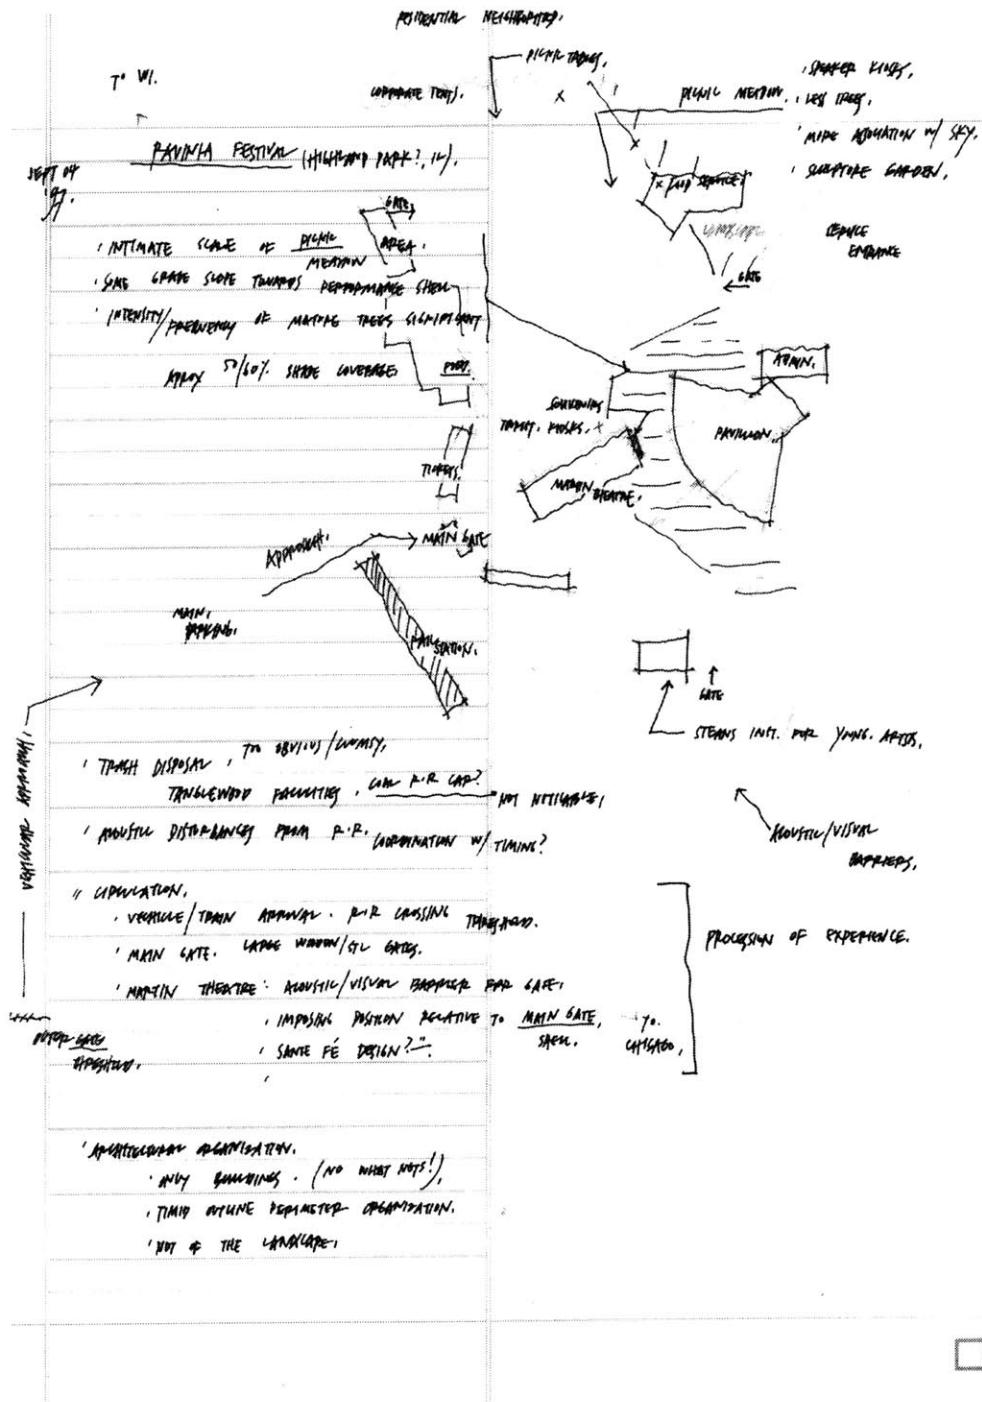 RESIDENTIAL NEIGHBORHOOD.
PICNIC TABLES.
TO WI.
CORPORATE TENTS.
PICNIC MEADOW.
· SPEAKER KIOSKS.
· LESS TREES.
· MORE ASSOCIATION W/ SKY.
· SCULPTURE GARDEN.
RAVINIA FESTIVAL (HIGHLAND PARK?, IL).
SEPT 04
'97.
FOOD SERVICE.
SERVICE
ENTRANCE
GATE
GATE
· INTIMATE SCALE OF PICNIC AREA.
MEADOW
· SOME GRADE SLOPE TOWARDS PERFORMANCE SHELL
· INTENSITY/FREQUENCY OF MATURE TREES SIGNIFICANT
APROX 50/60% SHADE COVERAGE
FOOD.
ADMIN.
SOUVENIRS
KIOSKS.
PAVILLION.
MARTIN THEATRE.
TICKETS.
APPROACH.
MAIN GATE
MAIN
PARKING.
RAIL STATION.
GATE
STEANS INST. FOR YOUNG. ARTISTS.
· TRASH DISPOSAL, TOO OBVIOUS/CLUMSY,
TANGLEWOOD FACILITIES. COAL R.R CAR?
NOT NOTICABLE,
· ACOUSTIC DISTURBANCES FROM R.R. COORDINATION W/ TIMING?
ACOUSTIC/VISUAL
BARRIERS.
" CIRCULATION.
· VEHICLE/TRAIN ARRIVAL. R.R CROSSING THRESHOLD.
· MAIN GATE. LARGE WOODEN/STL GATES.
· MARTIN THEATRE: ACOUSTIC/VISUAL BARRIER FOR GATE,
· IMPOSING POSITION RELATIVE TO MAIN GATE,
· SANTE FÉ DESIGN?
TO.
CHICAGO,
PROCESSION OF EXPERIENCE.
OUTER GATE
THRESHOLD.
· ARCHITECTURAL ORGANIZATION.
· ONLY BUILDINGS. (NO WHAT NOTS!),
· TIMID OUTLINE PERIMETER ORGANIZATION.
· NOT OF THE LANDSCAPE,